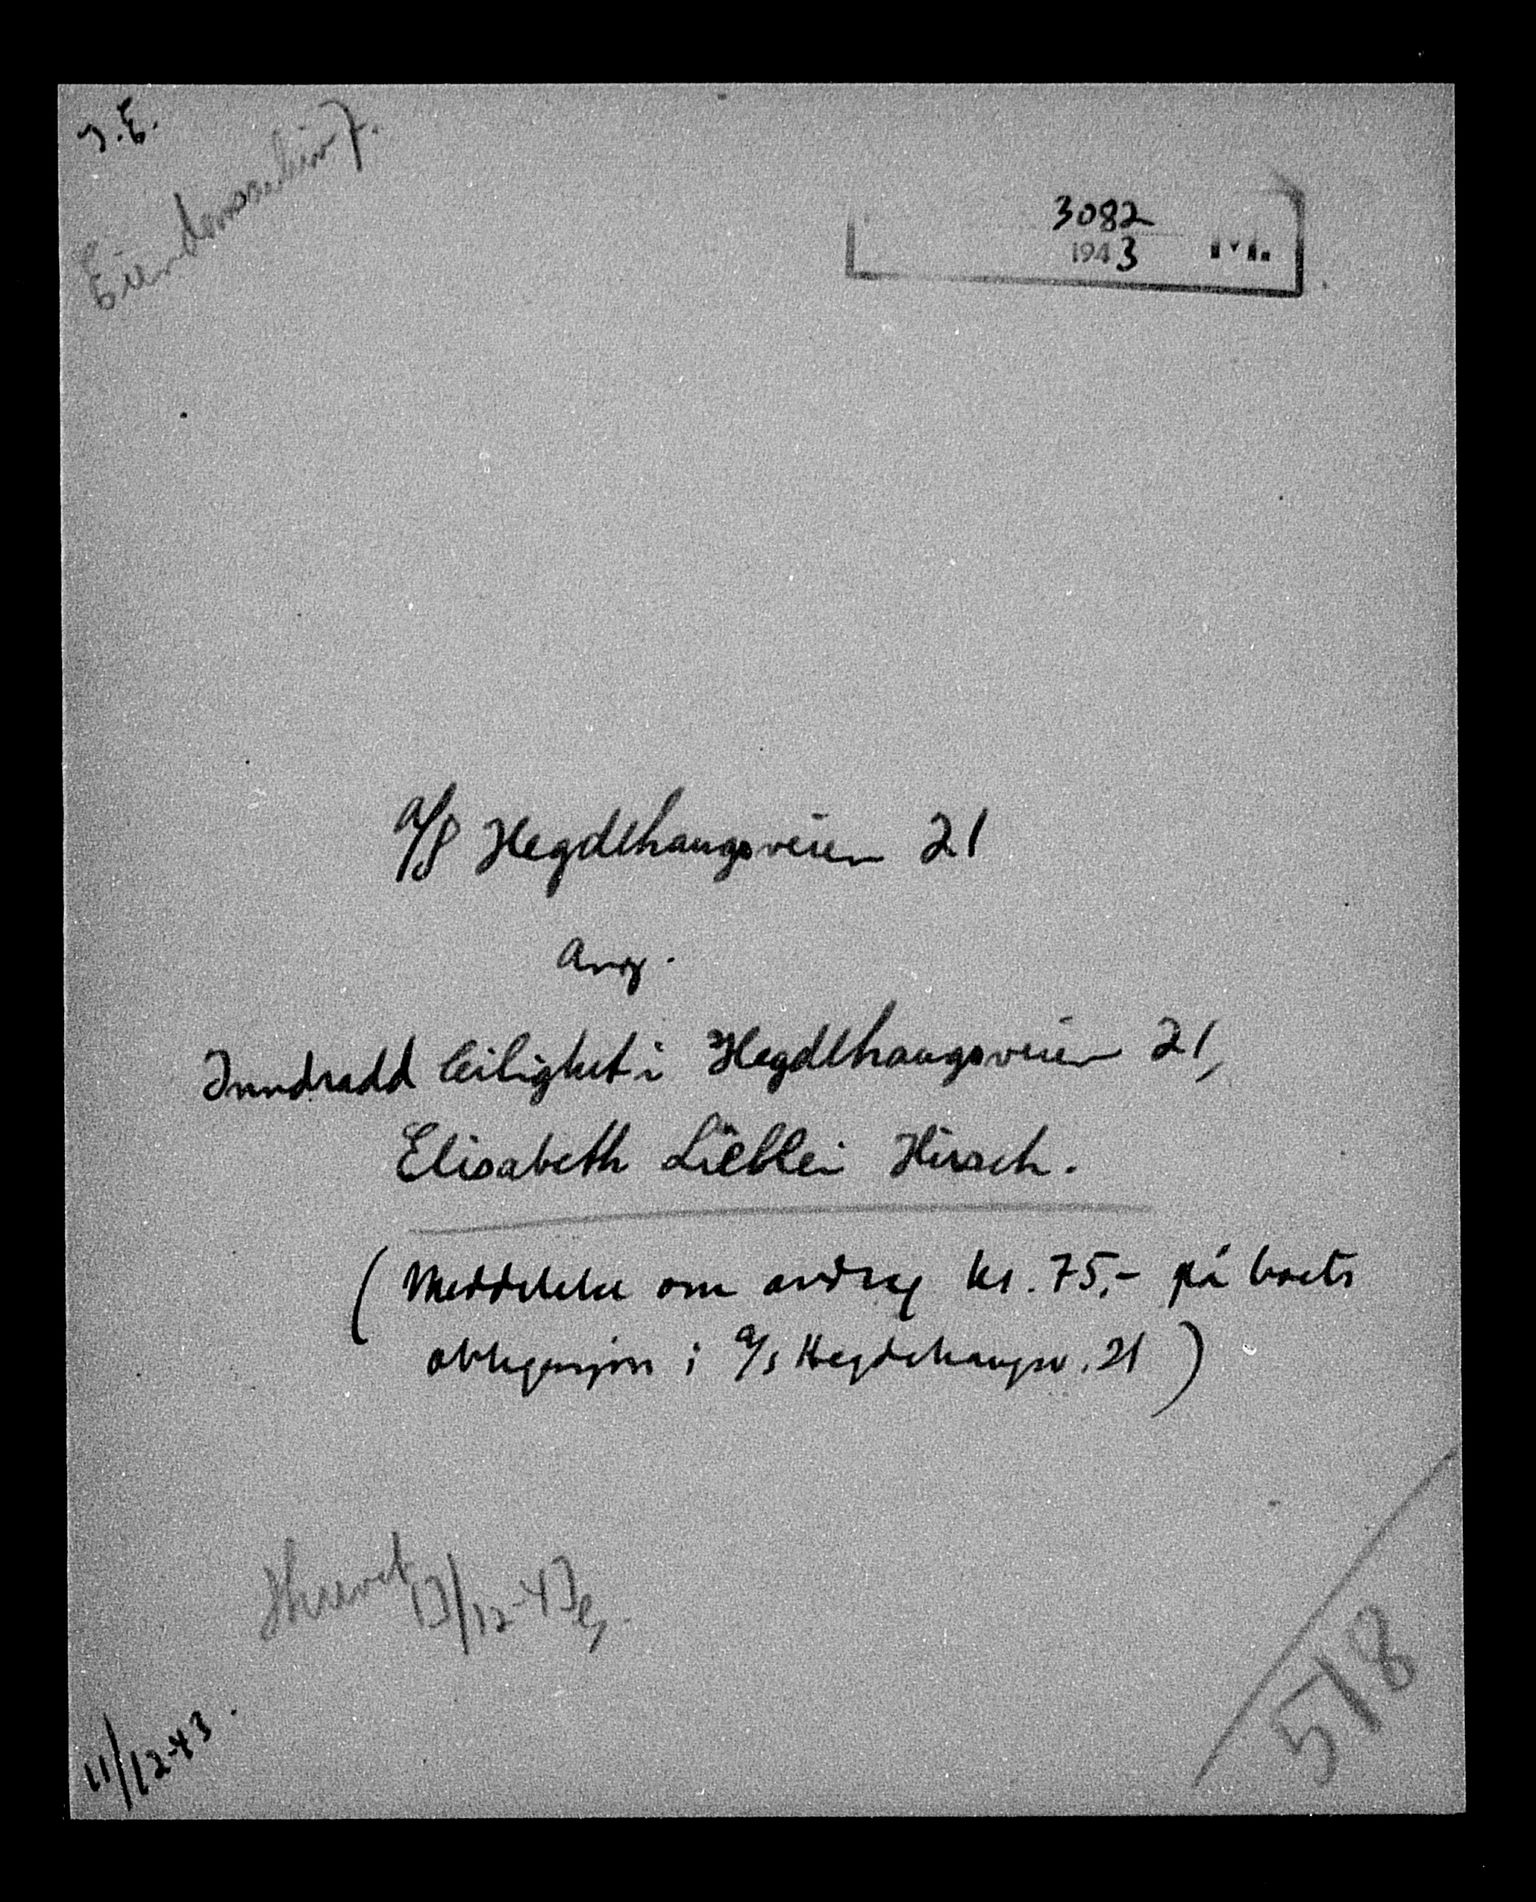 J.E.
3082
1943 M.
a/s Hegdehaugsveien 21
ang.
Inndradd leilighet i Hegdehaugsveien 21,
Elisabeth Lieblei Hirsch.
( Meddelelse om avdrag kr. 75,- på boets
obligasjon i a/s Hegdehaugsv. 21 )
Skrevet 13/12-43
11/12-43.
518